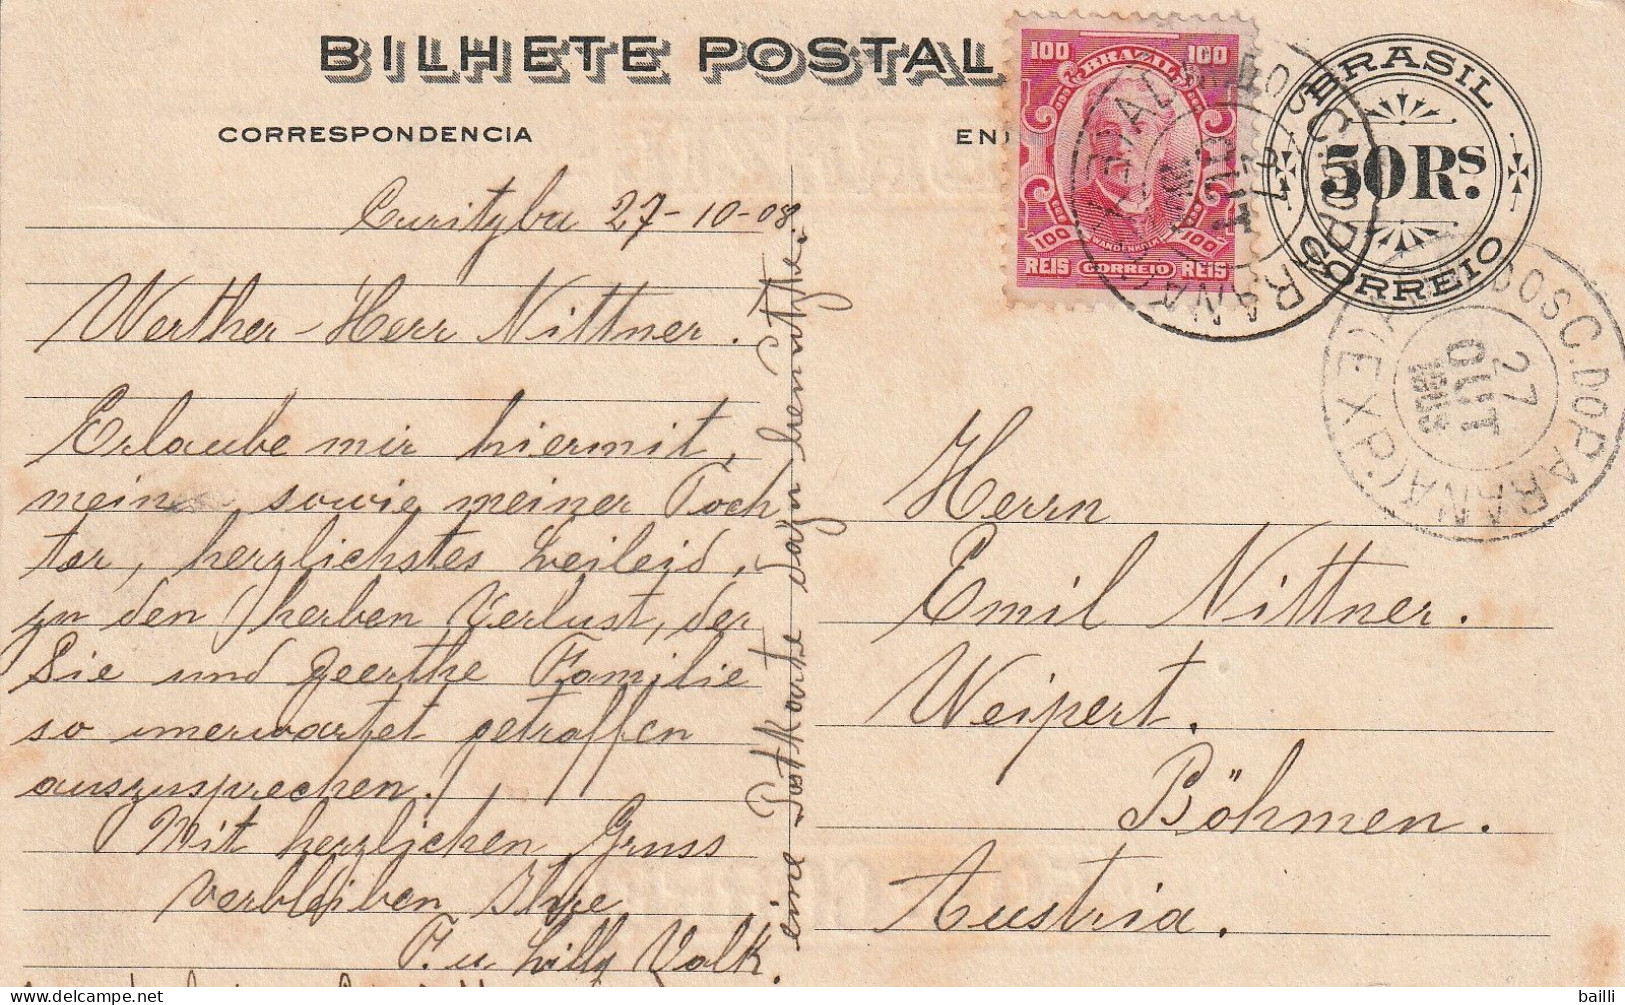 BILHETE POSTAL
CORRESPONDENCIA
100 100
BRAZIL
WANDENKOLK
100 100
REIS CORREIO REIS
BRASIL
50 Rs.
CORREIO
27
OUT
DOS C. DO PARANÁ (EXP.)
Curityba 27-10-08.
Werther Herr Nittner.
Erlaube mir hiermit,
meine sowie meiner Toch
ter, herzlichstes Beileid,
zu den herben Verlust, der
Sie und geerthe Familie
so unerwartet getroffen
auszusprechen.
Mit herzlichen Gruss
verbleiben Ihre
F. u Lilly Valk.
eine Postkarte dazu benutze.
Herrn
Emil Nittner.
Weipert.
Böhmen.
Austria.
bailli